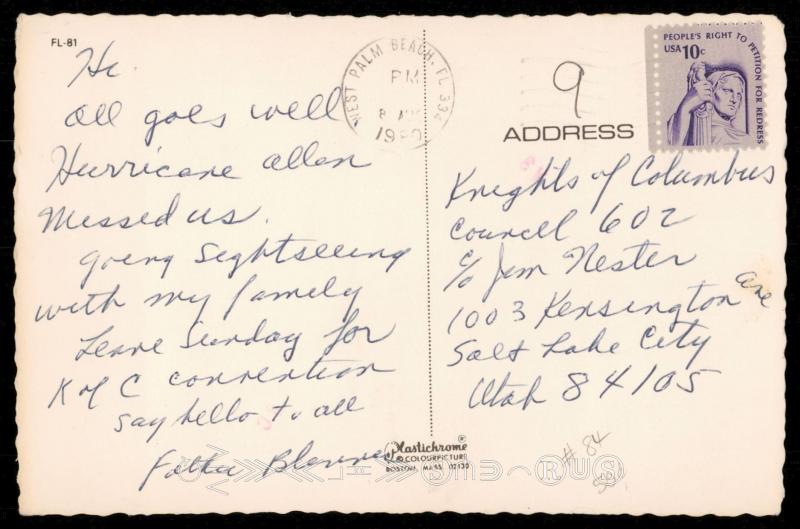 FL-81
Hi.
All goes well
Hurricane Allen
Missed us.
Going Sightseeing
with my family
Leave Sunday for
K of C convention
Say hello to all
Father
WEST PALM BEACH, FL 334
PM
8
1980
PEOPLE'S RIGHT TO PETITION FOR REDRESS
USA 10c
9
ADDRESS
Knights of Columbus
Council 602
c/o Jim Nester
1003 Kensington Ave
Salt Lake City
Utah 84105
Plastichrome®
© COLOURPICTURE
BOSTON, MASS. 02130
# 84